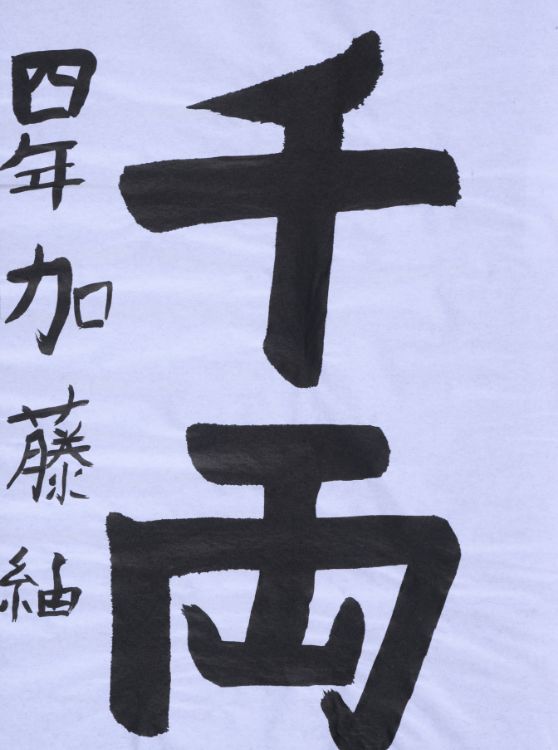 千両
四年加藤紬